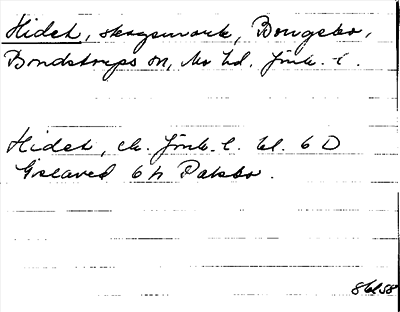 Hidet, skogsmark, Bongsbo,
Bondstorps sn, Mo hd. Jönk. l.
Hidet, ek. Jönk. l. bl. 6 D
Gislaved 6 h Paksbo.